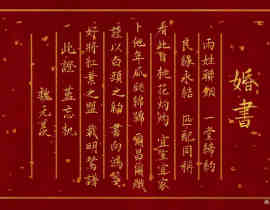 婚書
兩姓聯姻 一堂締約
良緣永結 匹配同稱
看此日桃花灼灼 宜室宜家
卜他年瓜瓞綿綿 爾昌爾熾
謹以白頭之約 書向鴻箋
好將紅葉之盟 載明鴛譜
此證 藍忘机
魏无羨